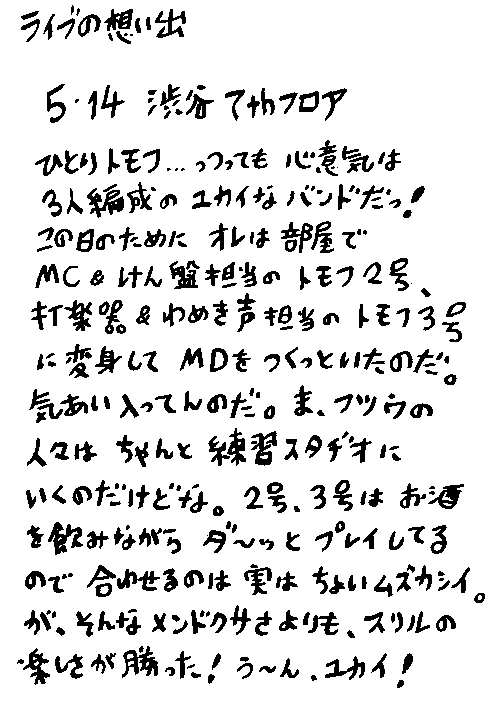 ライブの想い出
5・14 渋谷 7thフロア
ひとりトモフ…っつっても 心意気は
3人編成の ユカイな バンドだっ!
この日のために オレは 部屋で
MC & けん盤担当の トモフ2号、
打楽器。& わめき声 担当の トモフ3号
に変身して MDを つくっといたのだ。
気あい入ってんのだ。ま、フツウの
人々は ちゃんと 練習スタヂオに
いくのだけどな。2号、3号は お酒
を飲みながら ダ〜ッと プレイしてる
ので 合わせるのは 実は ちょいムズカシイ。
が、そんな メンドクサさよりも、スリルの
楽しさが 勝った! う〜ん、ユカイ!